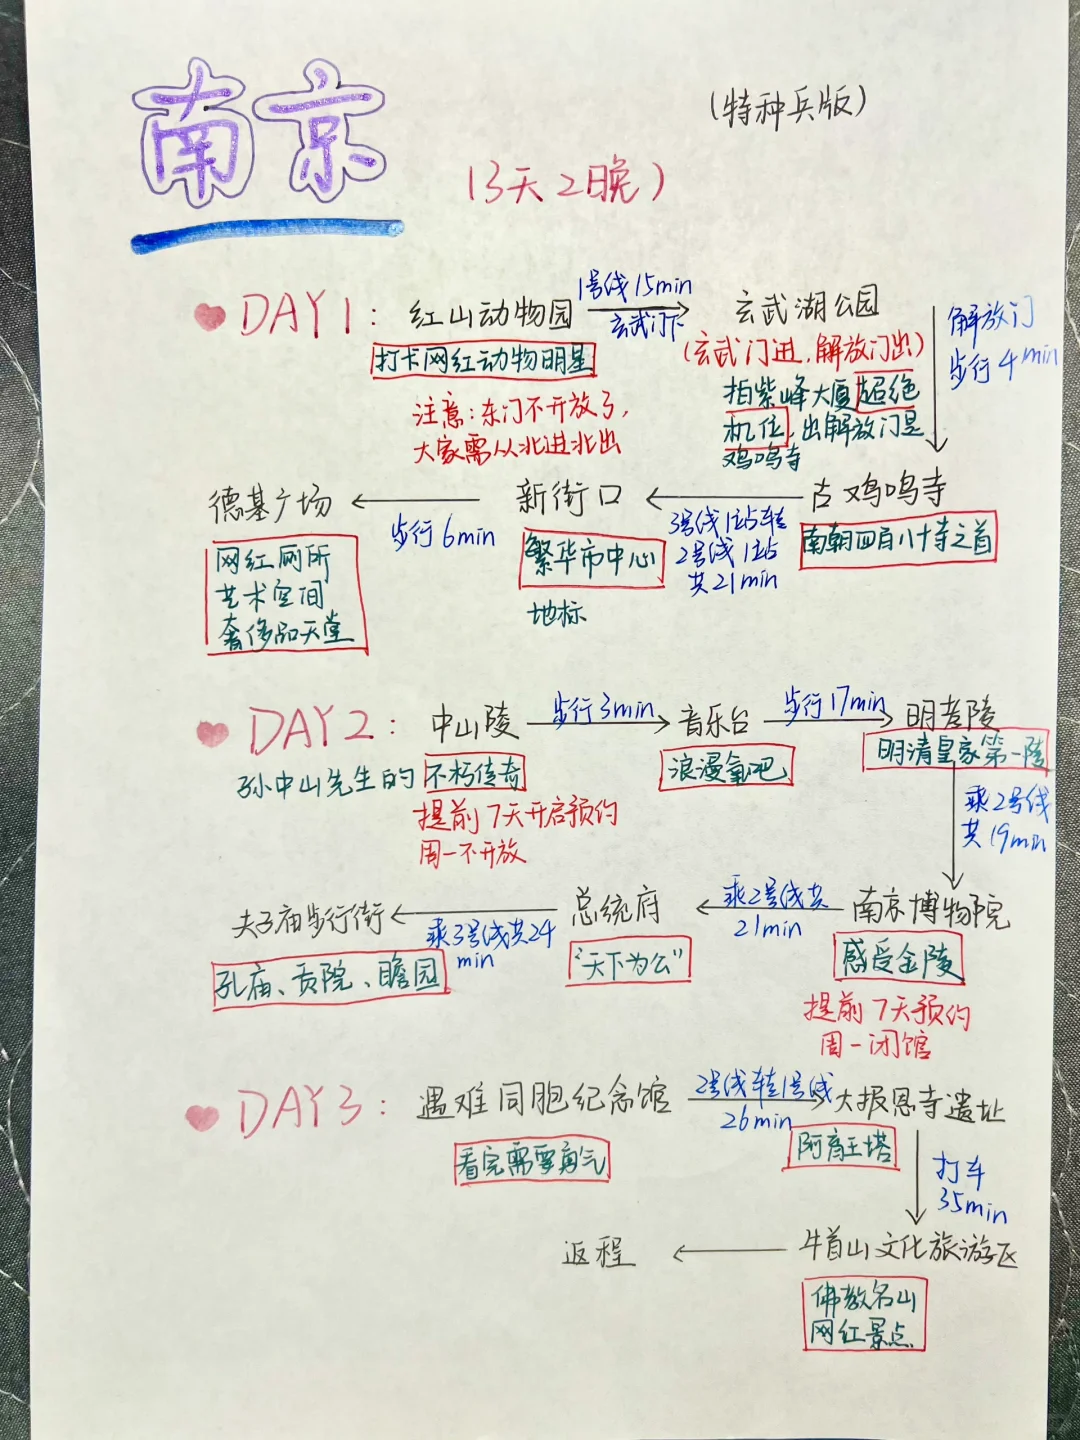 南京
(特种兵版)
(3天2晚)
DAY1:
红山动物园
1号线15min
玄武门下
玄武湖公园
打卡网红动物明星
(玄武门进,解放门出)
解放门
步行4min
注意:东门不开放了,
大家需从北进北出
拍紫峰大厦超绝
机位,出解放门是
鸡鸣寺
德基广场
步行6min
新街口
3号线1站转
2号线1站
共21min
古鸡鸣寺
网红厕所
艺术空间
奢侈品天堂
繁华市中心
地标
南朝四百八十寺之首
DAY2:
中山陵
步行3min
音乐台
步行17min
明孝陵
孙中山先生的不朽传奇
浪漫氧吧
明清皇家第一陵
提前7天开启预约
周一不开放
乘2号线
共19min
夫子庙步行街
乘3号线共24
min
总统府
乘2号线共
21min
南京博物院
孔庙、贡院、瞻园
“天下为公”
感受金陵
提前7天预约
周一闭馆
DAY3:
遇难同胞纪念馆
2号线转1号线
26min
大报恩寺遗址
看完需要勇气
阿育王塔
打车
35min
返程
牛首山文化旅游区
佛教名山
网红景点